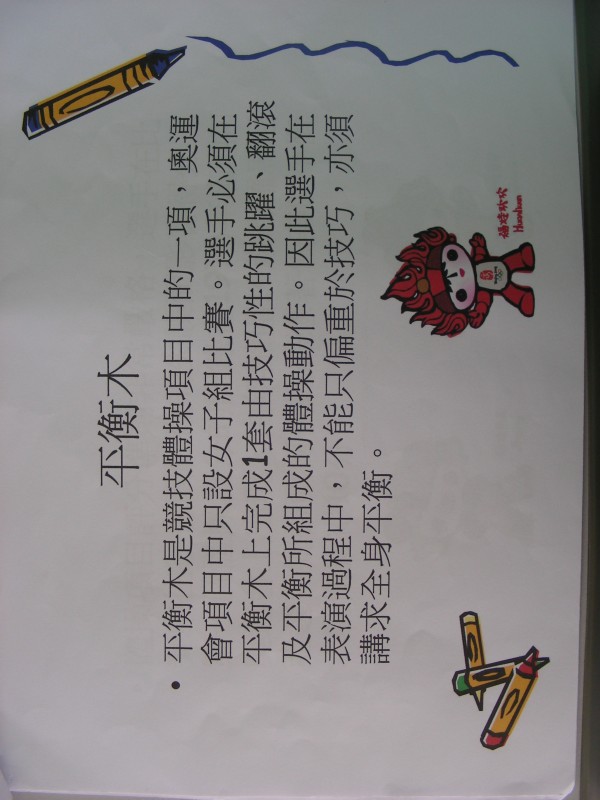 平衡木
• 平衡木是競技體操項目中的一項，奧運
會項目中只設女子組比賽。選手必須在
平衡木上完成1套由技巧性的跳躍、翻滾
及平衡所組成的體操動作。因此選手在
表演過程中，不能只偏重於技巧，亦須
講求全身平衡。
福娃欢欢
Huanhuan